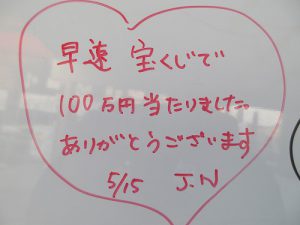 早速 宝くじで
100万円当たりました。
ありがとうございます
5/15 J.N